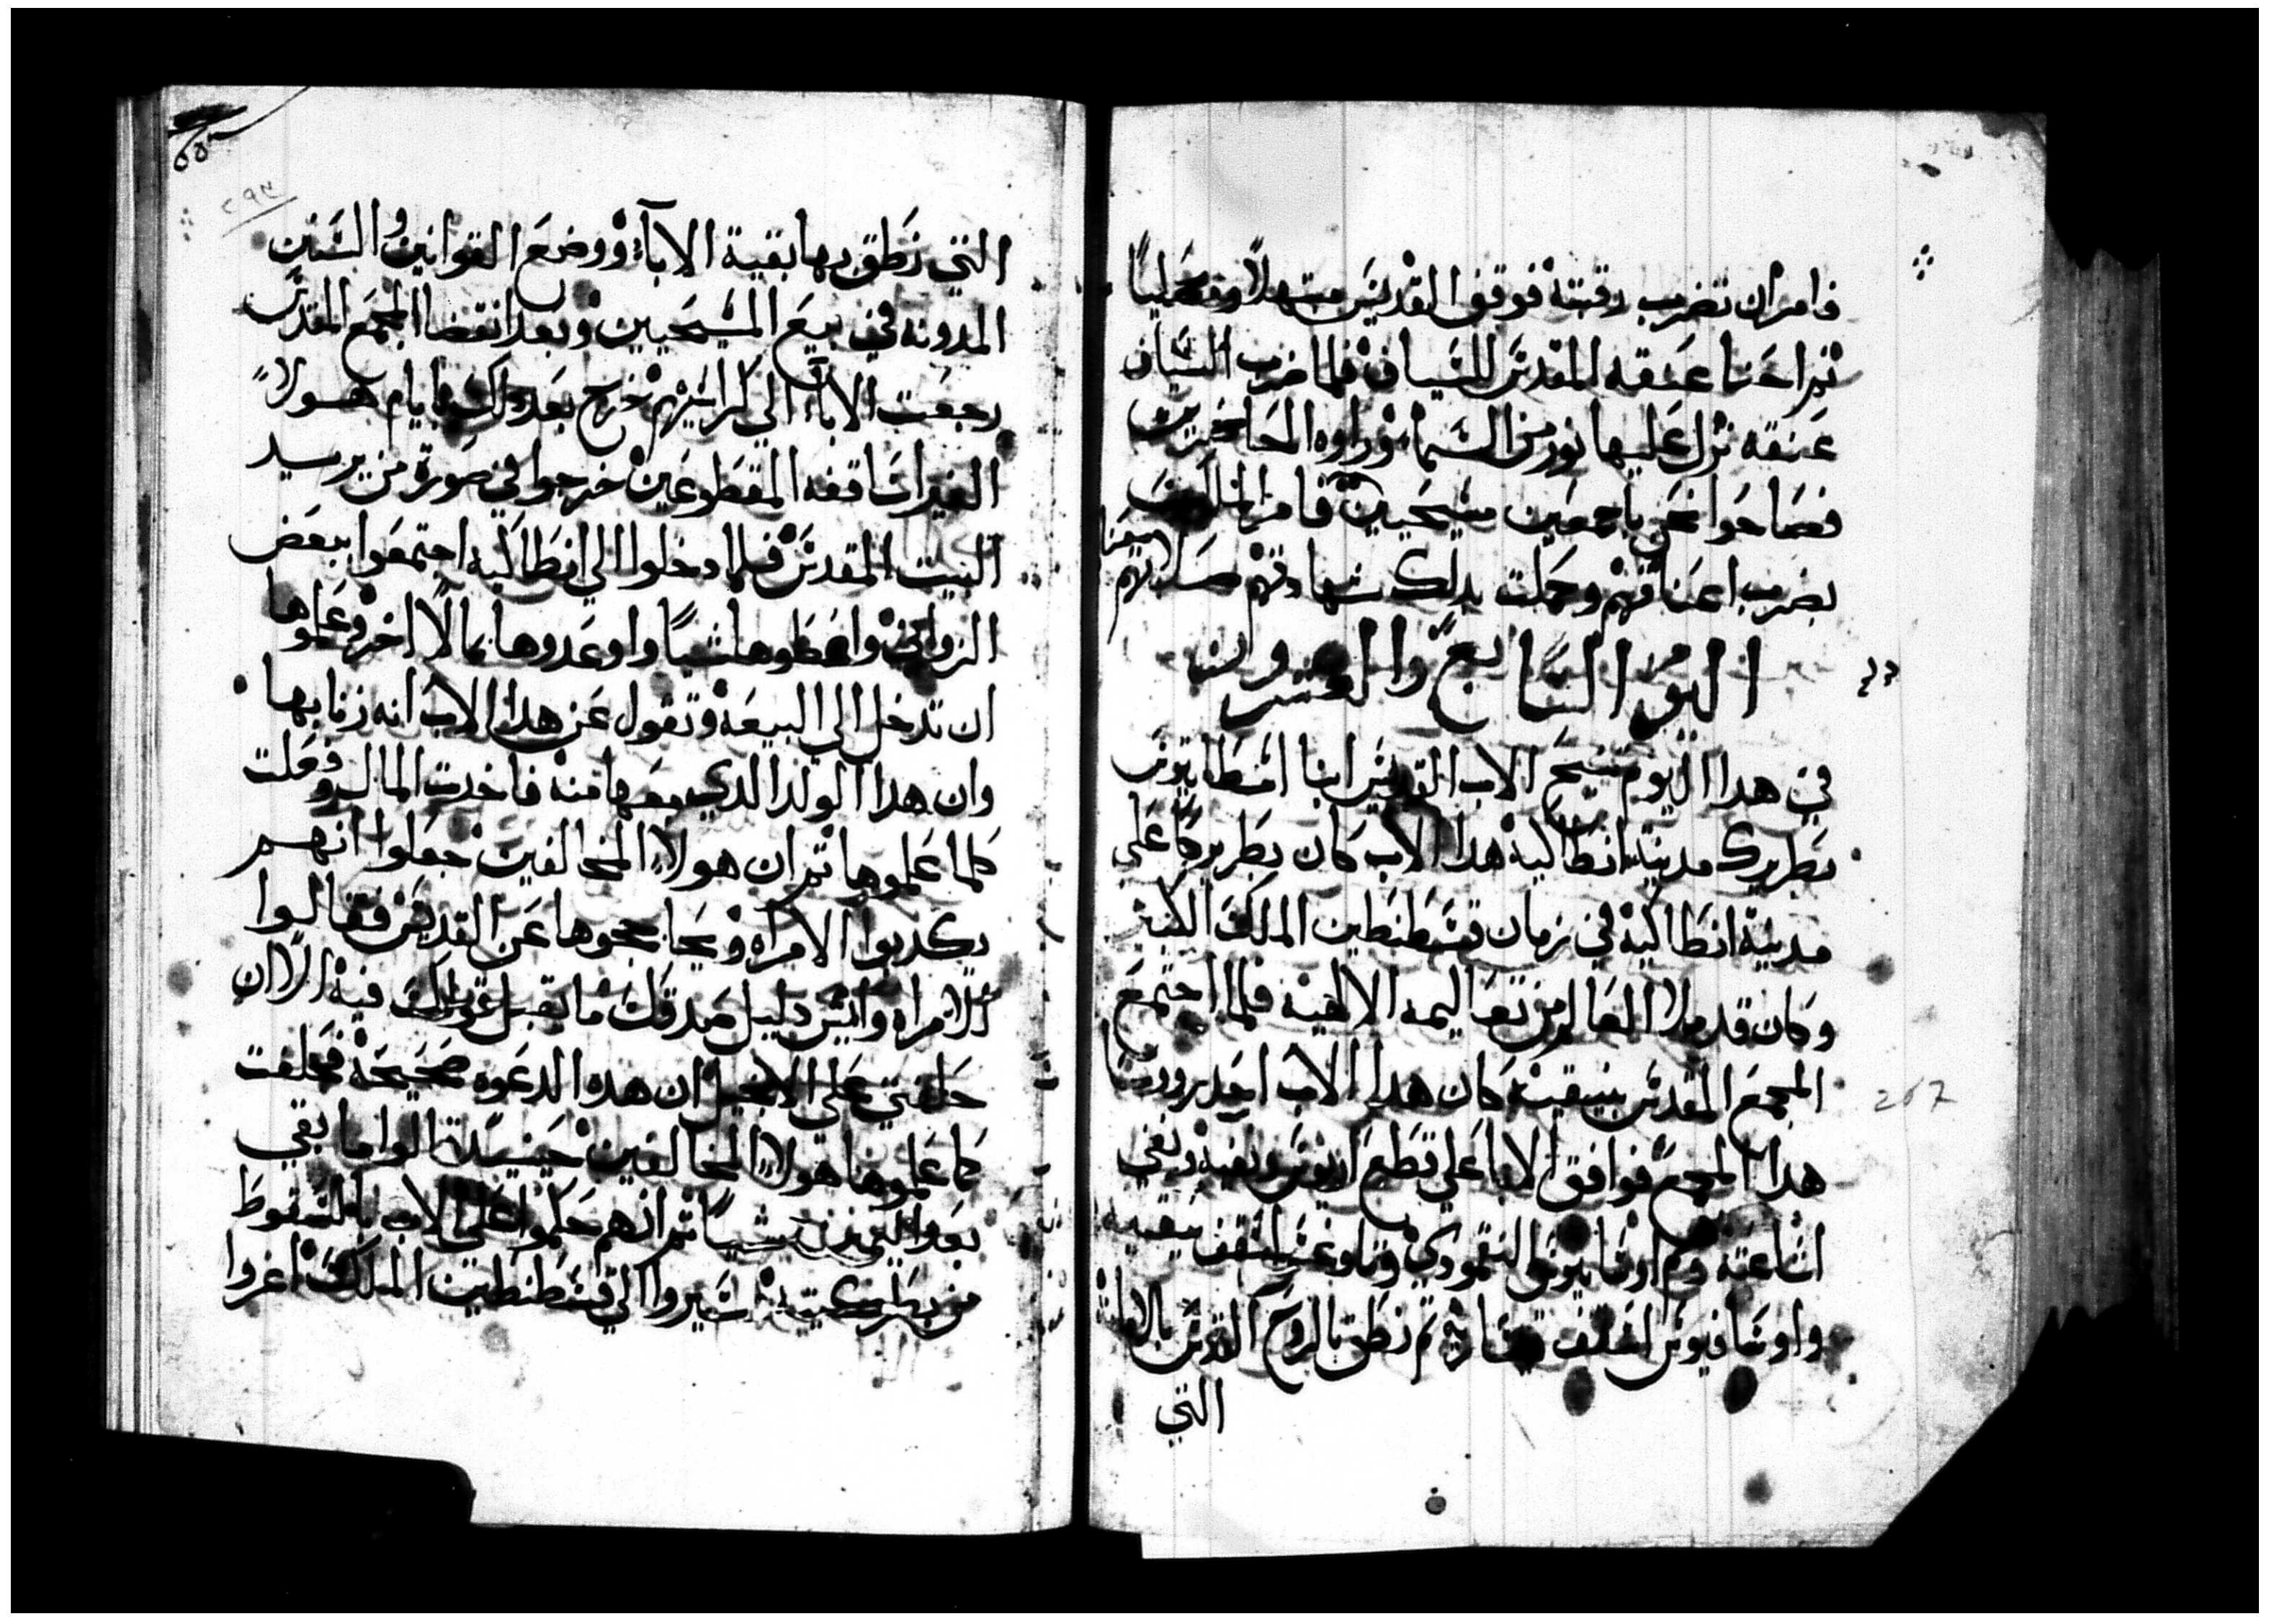 فامر ان تضرب رقبته فوقف القديس مبتهلا ومصليا
ثم احنا عنقه المقدس للسياف فلما ضرب السياف
عنقه نزل عليها نور من السما وراوه الحاضرين
فصاحوا نحن باجمعين مسيحيين فامر الملك
بضرب اعناقهم وكملت بدلك شهادتهم صلاتهم معنا
اليوم السابع والعشرون
في هدا اليوم تنيح الاب القديس انبا اسطاتيوس
بطريرك مدينة انطاكية هدا الاب كان بطريركا على
مدينة انطاكية في زمان قسطنطين الملك الكبير
وكان قد ملا العالم من تعاليمه الالهية فلما اجتمع
المجمع المقدس بنيقية كان هدا الاب احد روسا
267
هدا المجمع فوافق الابا على قطع اريوس ونفيه ونفي
اشاعته وهم اوسابيوس النيقمودي وتاوغنس اسقف نيقيه
واوسافيوس اسقف قيسارية ثم نطق بالروح القدس بالامانة
التي
٥٥٣
٢٩٣
التي نطق بها بقية الاباء ووضع القوانين والسنن
المدونه في بيع المسيحيين وبعد انقضا المجمع المقدس
رجعت الاباء الي كراسيهم خرج بعد دلك بايام هولاء
الغير اساقفه المقطوعين خرجوا في صورة من يريد
البيت المقدس فلما دخلوا الي انطاكيه اجتمعوا ببعض
الزواني واعطوها شيا واوعدوها بمالا اخر وعلموها
ان تدخل الي البيعة وتقول عن هدا الاب انه زنا بها
وان هدا الولد الدي معها منه فاخدت المال وفعلت
كلما علموها ثم ان هولاء المخالفين جعلوا انهم
يكدبوا الامراه ويحاججوها عن القديس فقالوا
للامراه وايش دليل صدقك ما يقبل قولك فيه الا ان
حلفتي على الانجيل ان هده الدعوه صحيحة فحلفت
كما علموها هولاء المخالفين حينيد قالوا ما بقي
بعد اليمين شيا ثم انهم حكموا على الاب بالسقوط
من بطريركيته وسيروا الي قسطنطين الملك اغروا